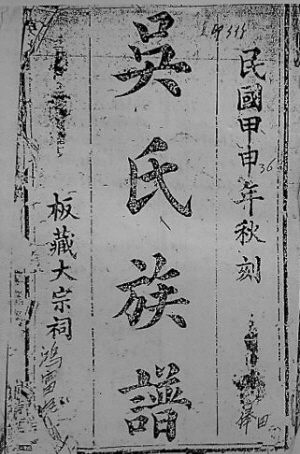 民國甲申年秋刻
吳氏族譜
板藏大宗祠